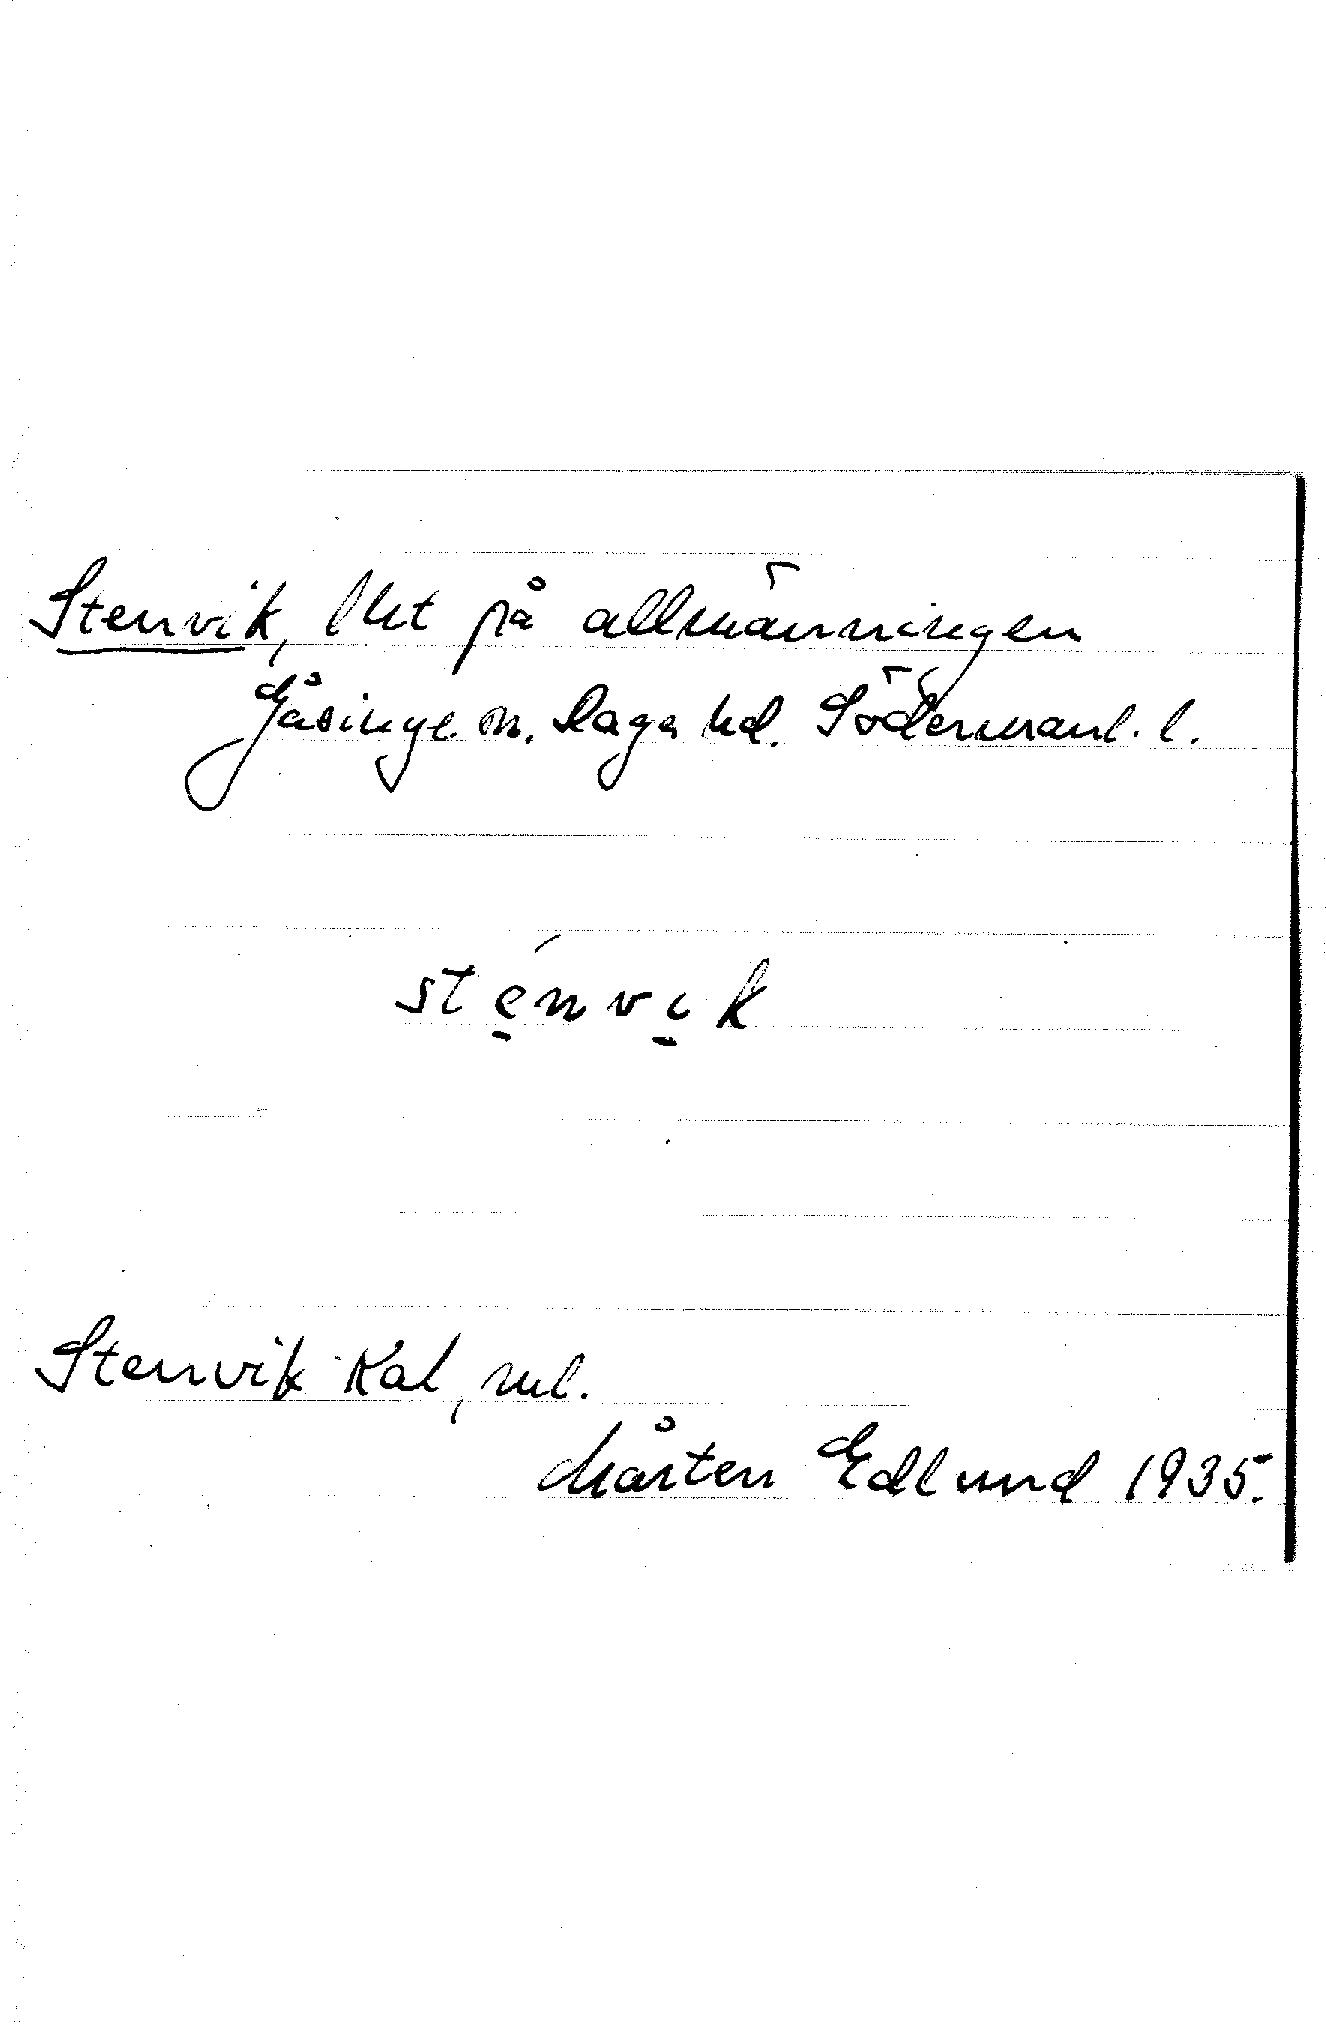 Stenvik, lht på allmänningen
Gåsinge sn. Daga hd. Södermanl. l.
sténvik
Stenvik Kat, rul.
Mårten Edlund 1935.